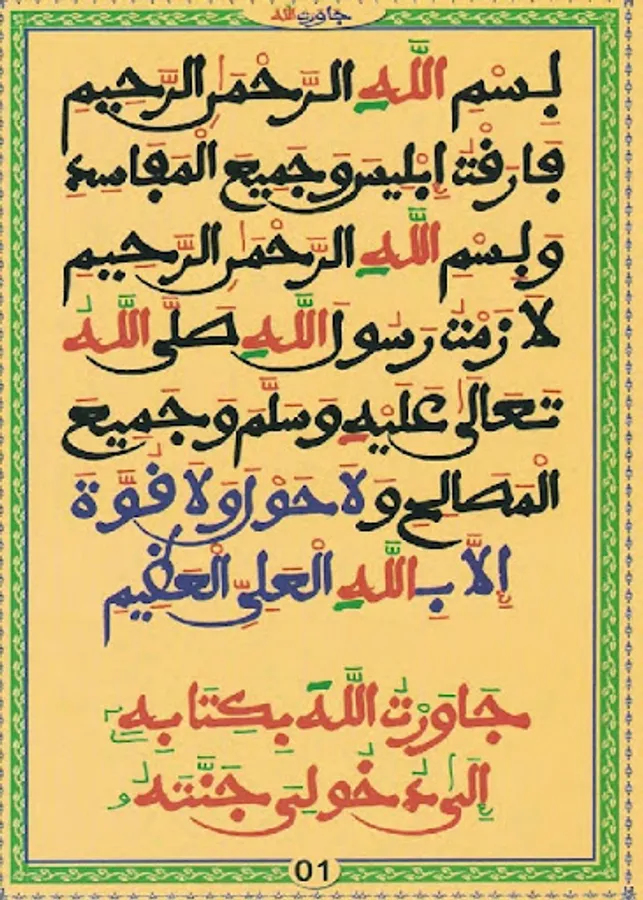 جاورت الله
بِسْمِ اللَّهِ الرَّحْمَٰنِ الرَّحِيمِ
فَارَقْتُ إِبْلِيسَ وَجَمِيعَ الْمَفَاسِدِ
وَبِسْمِ اللَّهِ الرَّحْمَٰنِ الرَّحِيمِ
لَازَمْتُ رَسُولَ اللَّهِ صَلَّى اللَّهُ
تَعَالَى عَلَيْهِ وَسَلَّمَ وَجَمِيعَ
الْمَصَالِحِ وَلَا حَوْلَ وَلَا قُوَّةَ
إِلَّا بِاللَّهِ الْعَلِيِّ الْعَظِيمِ
جَاوَرْتُ اللَّهَ بِكِتَابِهِ
إِلَى دُخُولِي جَنَّتَهُ
01